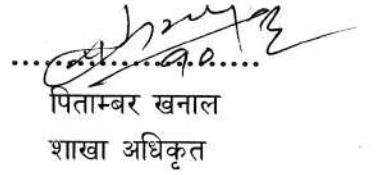 ....................
पिताम्बर खनाल
शाखा अधिकृत